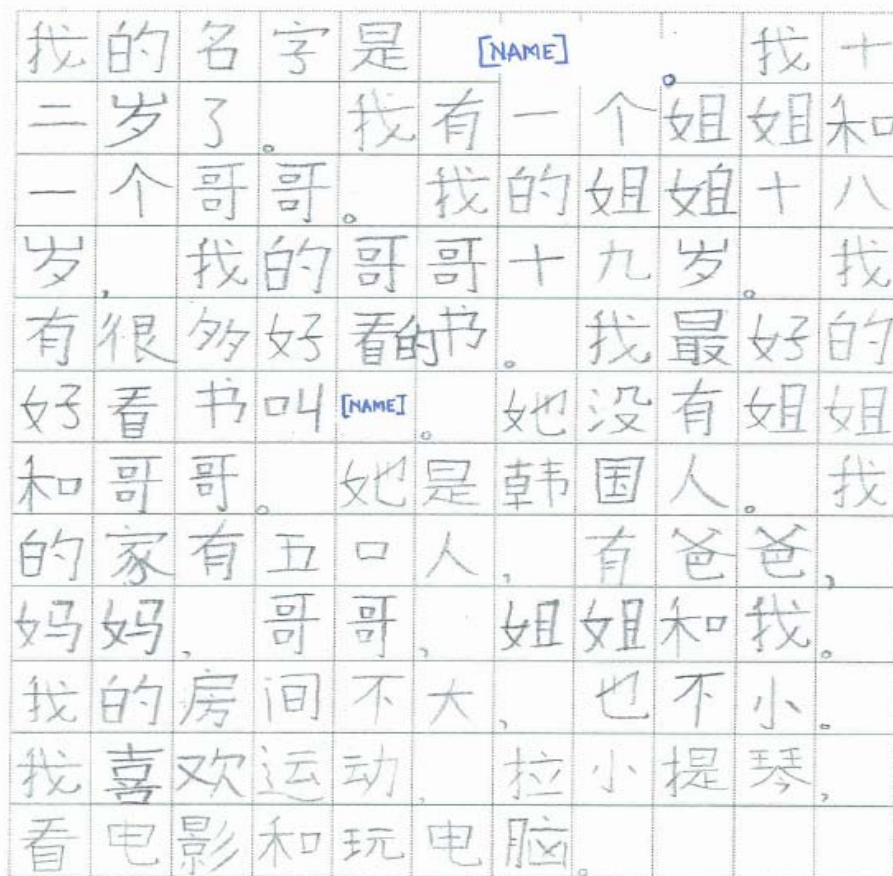 我的名字是 [NAME] 。我十
二岁了。我有一个姐姐和
一个哥哥。我的姐姐十八
岁，我的哥哥十九岁。我
有很多好看的书。我最好的
好看书叫[NAME]。她没有姐姐
和哥哥。她是韩国人。我
的家有五口人，有爸爸，
妈妈，哥哥，姐姐和我。
我的房间不大，也不小。
我喜欢运动，拉小提琴，
看电影和玩电脑。